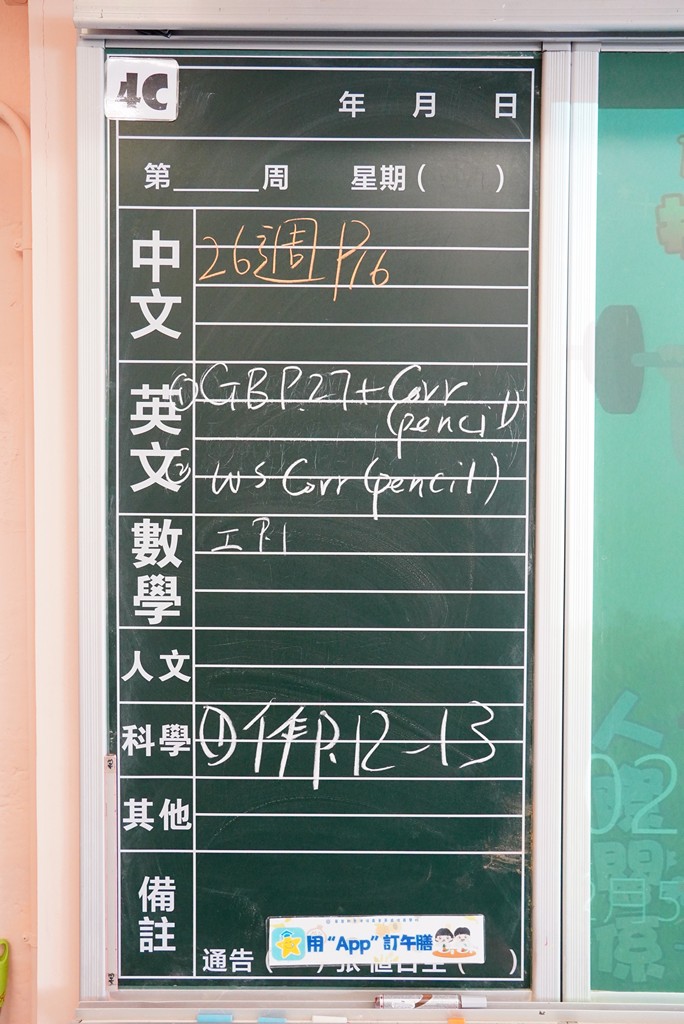 4C
年 月 日
第______周 星期( )
中文
26週 P.16
英文
① GB P.27 + Corr
(pencil)
② WS Corr (pencil)
數學
工 P.1
人文
科學
① 作 P.12-13
其他
備註
用“App”訂午膳
通告( )
02